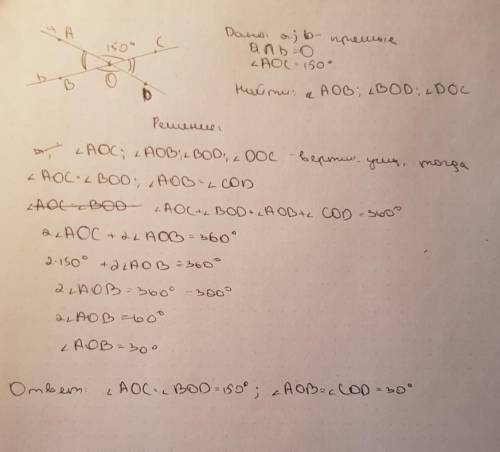 a A 150° C
b B O D
Дано: a; b - прямые
a∩b=O
∠AOC=150°
Найти: ∠AOB; ∠BOD; ∠DOC
Решение:
∠AOC; ∠AOB; ∠BOD; ∠DOC - вертик. углы, тогда
∠AOC=∠BOD; ∠AOB=∠COD
∠AOC=∠BOD ∠AOC+∠BOD+∠AOB+∠COD=360°
2∠AOC + 2∠AOB=360°
2·150° +2∠AOB=360°
2∠AOB=360° -300°
2∠AOB=60°
∠AOB=30°
Ответ: ∠AOC=∠BOD=150°; ∠AOB=∠COD=30°